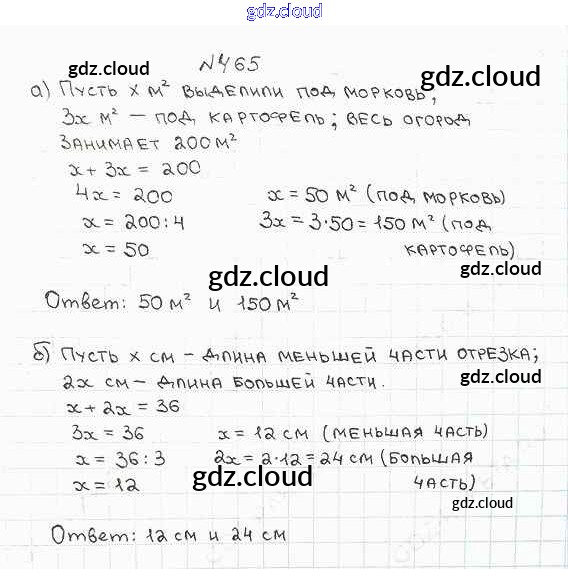 gdz.cloud
№465
gdz.cloud
gdz.cloud
а) Пусть x м² выделили под морковь,
3x м² – под картофель; весь огород
занимает 200 м²
x + 3x = 200
4x = 200
x = 50 м² (под морковь)
x = 200:4
3x = 3·50 = 150 м² (под
x = 50
картофель)
gdz.cloud
gdz.cloud
Ответ: 50 м² и 150 м²
б) Пусть x см – длина меньшей части отрезка;
gdz.cloud
2x см – длина большей части.
x + 2x = 36
3x = 36
x = 12 см (меньшая часть)
x = 36:3
2x = 2·12 = 24 см (большая
x = 12
часть)
gdz.cloud
gdz.cloud
Ответ: 12 см и 24 см